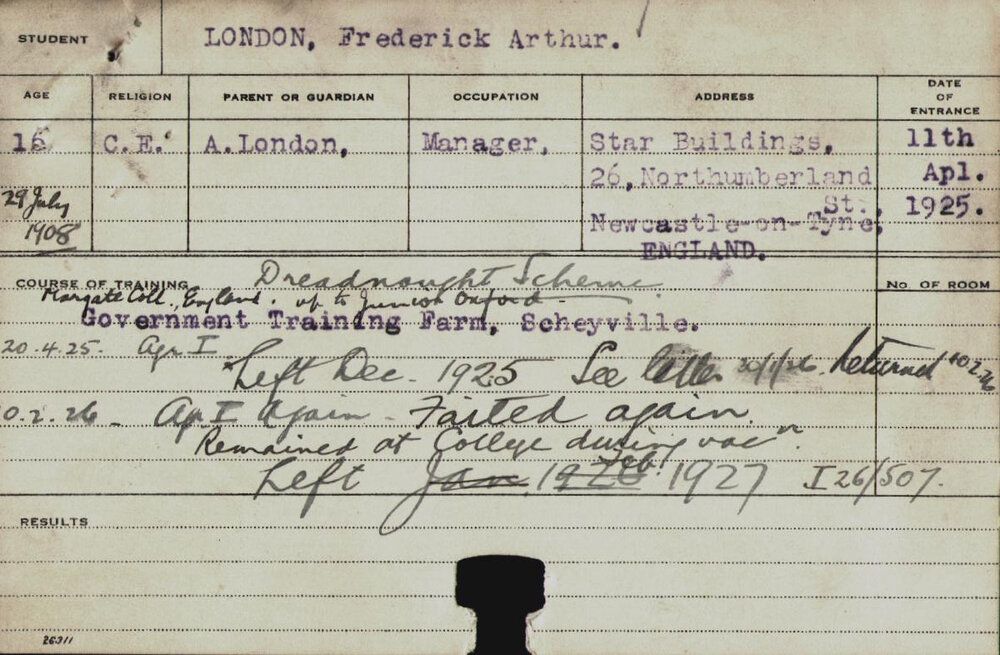 STUDENT LONDON, Frederick Arthur.
AGE RELIGION PARENT OR GUARDIAN OCCUPATION ADDRESS DATE OF ENTRANCE
16 C.E. A.London, Manager, Star Buildings, 11th
26,Northumberland Apl.
29 July St., 1925.
1908 Newcastle-on-Tyne,
ENGLAND.
COURSE OF TRAINING Dreadnought Scheme. No. OF ROOM
Margate Coll., England. up to Junior Oxford
Government Training Farm, Scheyville.
20.4.25. Agr I
Left Dec. 1925 See letter 30/1/26. Returned 10.2.26
10.2.26 - Ag. I Again - Failed again.
Remained at College during vacn.
Left Jan. 1926 Feb. 1927 I26/507.
RESULTS
26311